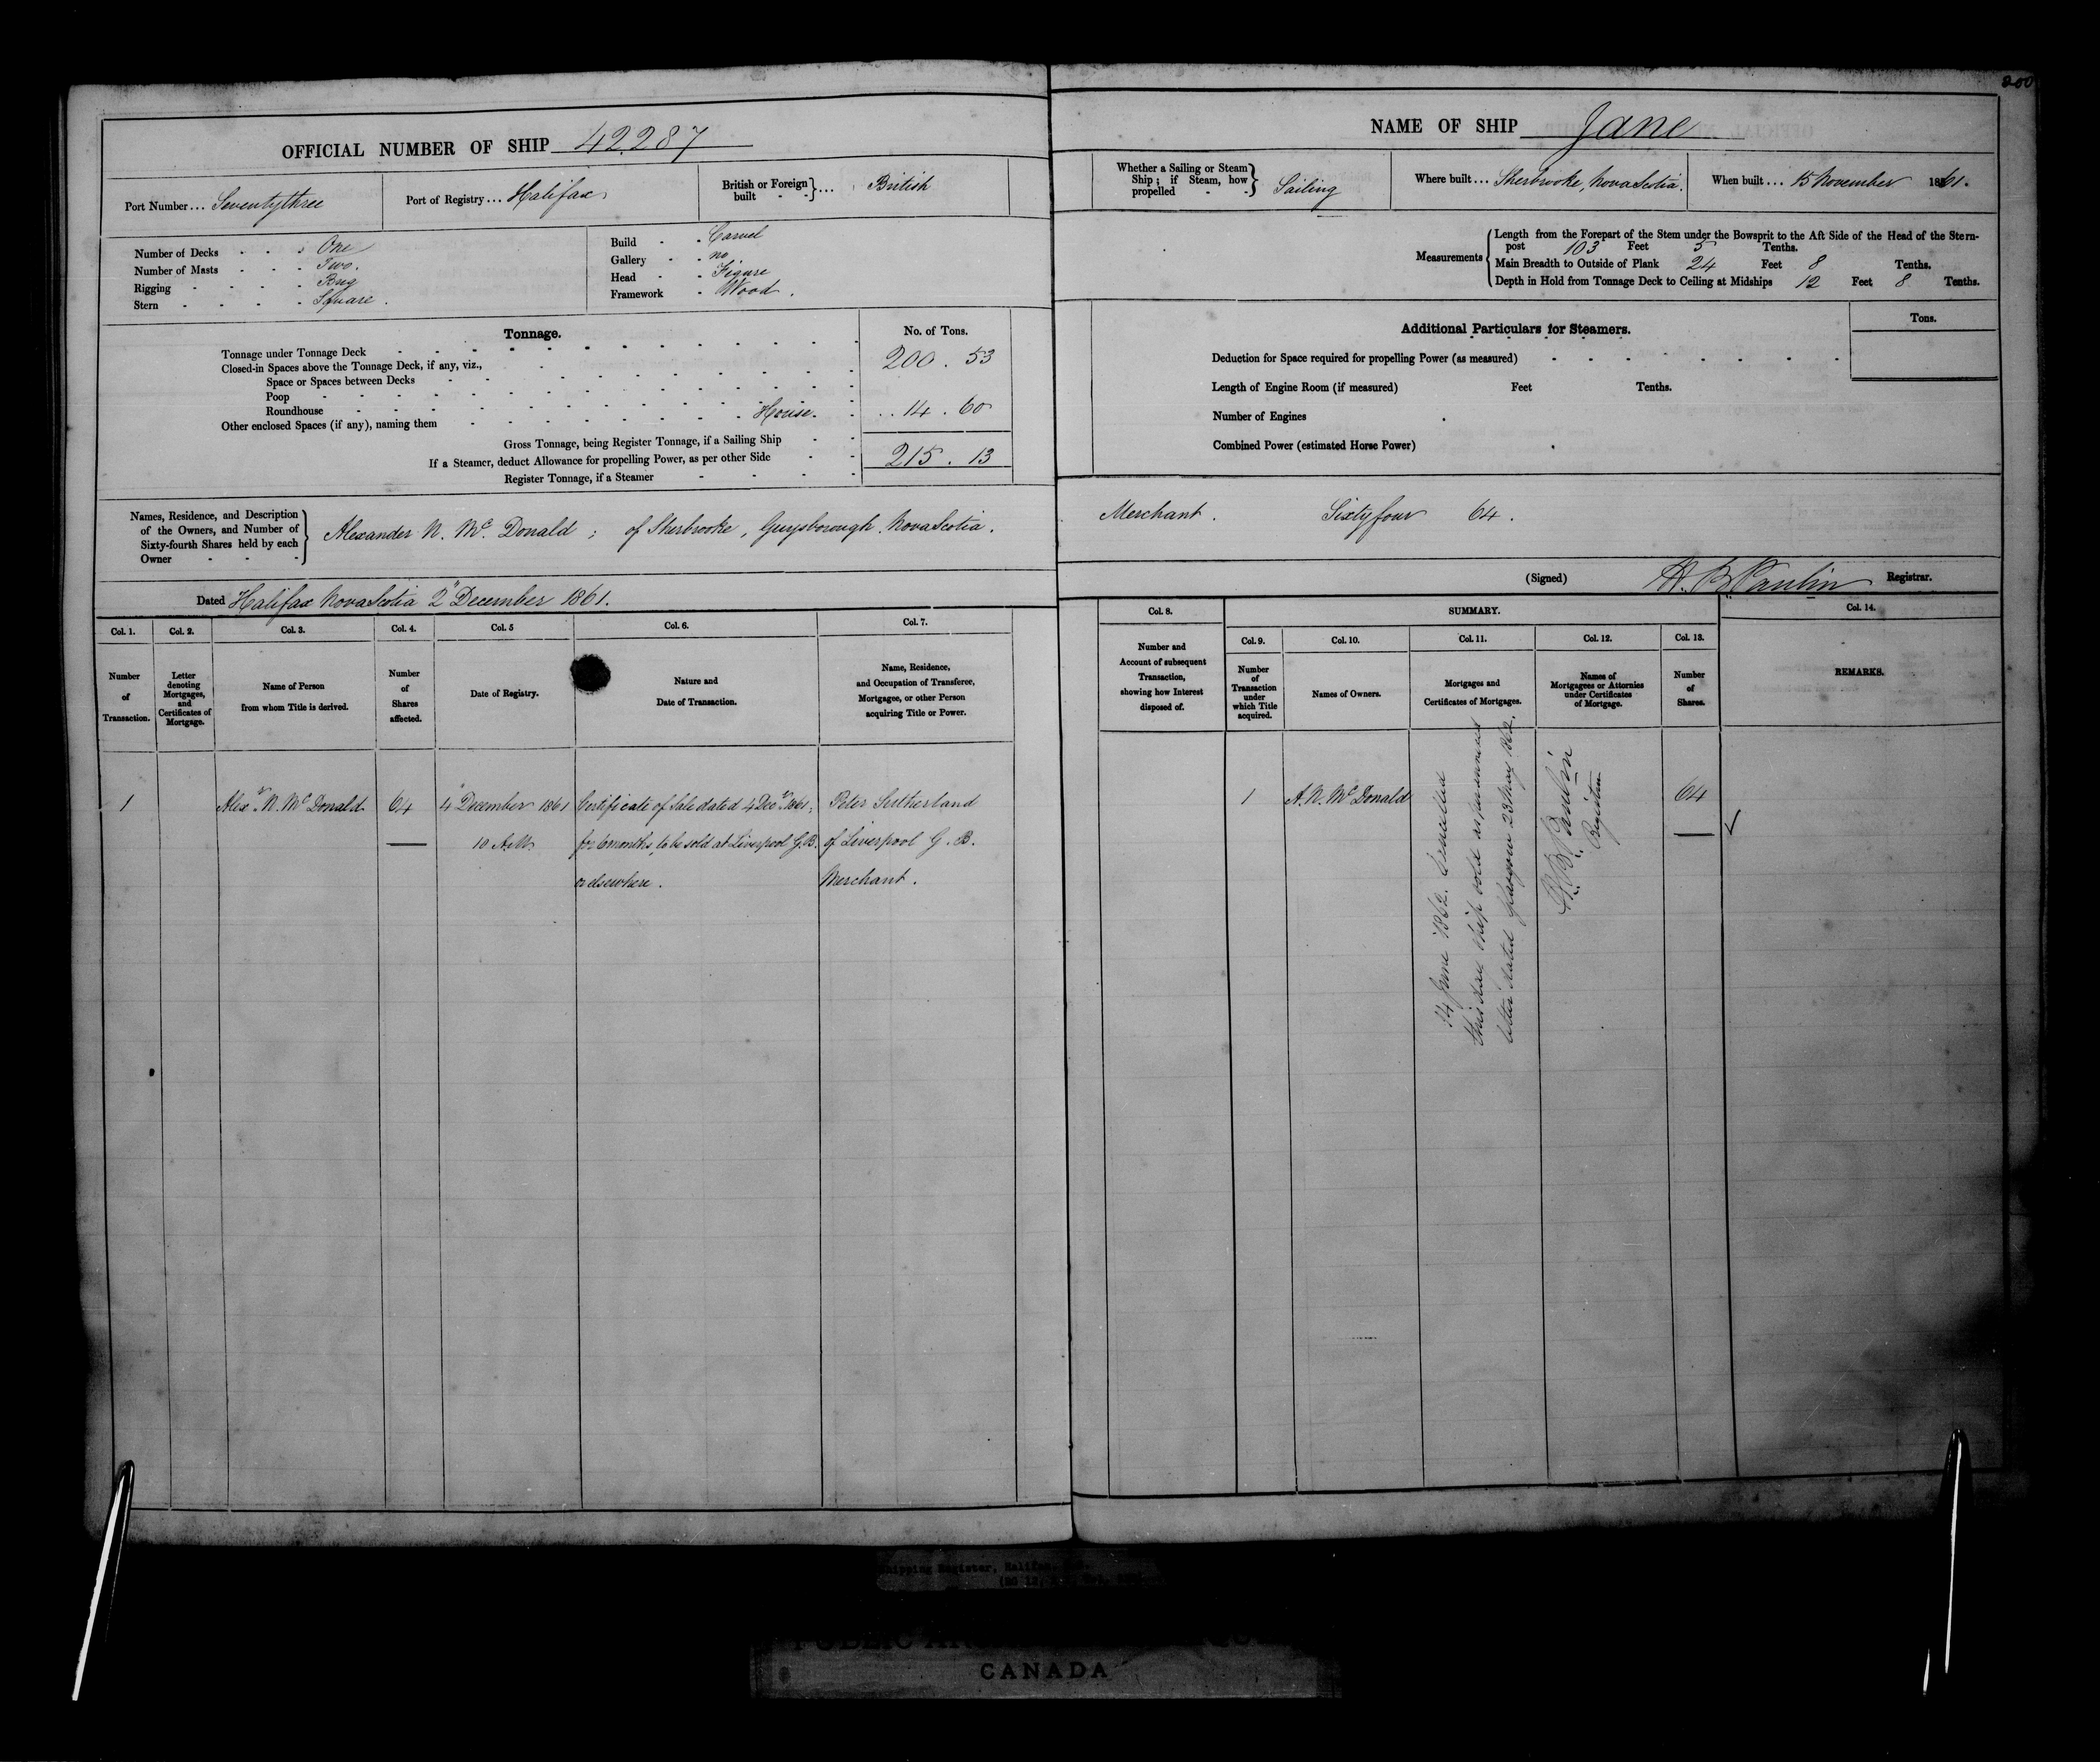 200
OFFICIAL NUMBER OF SHIP 42287
Port Number... Seventythree
Port of Registry... Halifax
British or Foreign built - - }... British
Number of Decks - - - One
Number of Masts - - - Two.
Rigging - - - - Brig
Stern - - - - Square.
Build - - Carvel
Gallery - - no
Head - - Figure
Framework - Wood.
Tonnage.
No. of Tons.
Tonnage under Tonnage Deck 200.53
Closed-in Spaces above the Tonnage Deck, if any, viz.,
Space or Spaces between Decks
Poop
Roundhouse House. ..14.60
Other enclosed Spaces (if any), naming them
Gross Tonnage, being Register Tonnage, if a Sailing Ship
If a Steamer, deduct Allowance for propelling Power, as per other Side 215.13
Register Tonnage, if a Steamer
Names, Residence, and Description
of the Owners, and Number of
Sixty-fourth Shares held by each
Owner - - -
Alexander N. McDonald; of Sherbrooke, Guysborough. Nova Scotia.
Dated Halifax Nova Scotia 2" December 1861.
Col. 1. Col. 2. Col. 3. Col. 4. Col. 5 Col. 6. Col. 7.
Number of Transaction.
Letter denoting Mortgages, and Certificates of Mortgage.
Name of Person from whom Title is derived.
Number of Shares affected.
Date of Registry.
Nature and Date of Transaction.
Name, Residence, and Occupation of Transferee, Mortgagee, or other Person acquiring Title or Power.
1 Alexr. N. McDonald 64 4" December 1861 Certificate of Sale dated 4 Decr. 1861, Peter Sutherland
10 A.M. for 6 months, to be sold at Liverpool G.B. of Liverpool G.B.
or elsewhere. Merchant.
NAME OF SHIP Jane
Whether a Sailing or Steam Ship; if Steam, how propelled - - } Sailing
Where built... Sherbrooke, Nova Scotia.
When built... 15 November 1861.
Measurements
Length from the Forepart of the Stem under the Bowsprit to the Aft Side of the Head of the Stern-
post 103 Feet 5 Tenths.
Main Breadth to Outside of Plank 24 Feet 8 Tenths.
Depth in Hold from Tonnage Deck to Ceiling at Midships 12 Feet 8 Tenths.
Additional Particulars for Steamers.
Tons.
Deduction for Space required for propelling Power (as measured)
Length of Engine Room (if measured) Feet Tenths.
Number of Engines
Combined Power (estimated Horse Power)
Merchant. Sixtyfour 64.
(Signed) H. B. Paulin Registrar.
Col. 8. SUMMARY. Col. 14.
Col. 9. Col. 10. Col. 11. Col. 12. Col. 13.
Number and Account of subsequent Transaction, showing how Interest disposed of.
Number of Transaction under which Title acquired.
Names of Owners.
Mortgages and Certificates of Mortgages.
Names of Mortgagees or Attornies under Certificates of Mortgage.
Number of Shares.
REMARKS.
1 A. N. McDonald 64
14 June 1862. Cancelled
this day, Ship sold as
letter dated 23 May 1862.
H. B. Paulin
Registrar
Shipping Register, Halifax,
CANADA